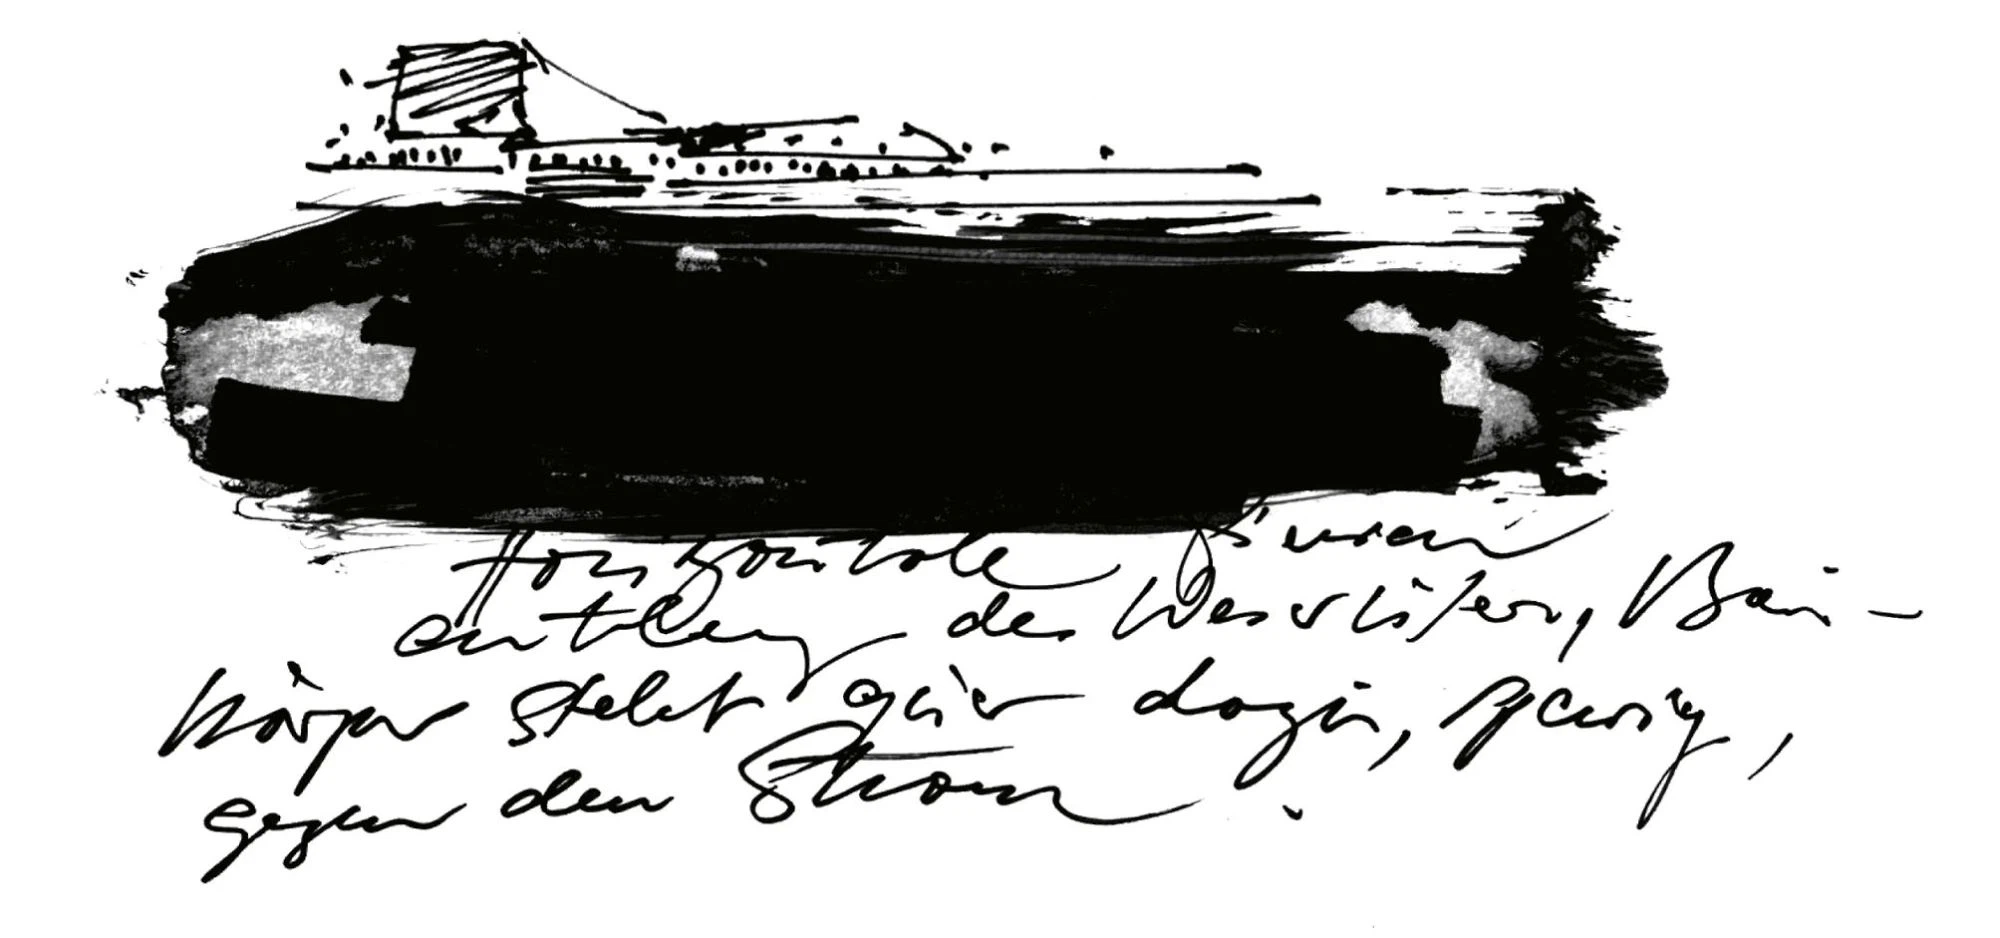 Horizontale Linien
entlang des Weserufers, Bau-
körper steht quer dazu, sperrig,
gegen den Strom.